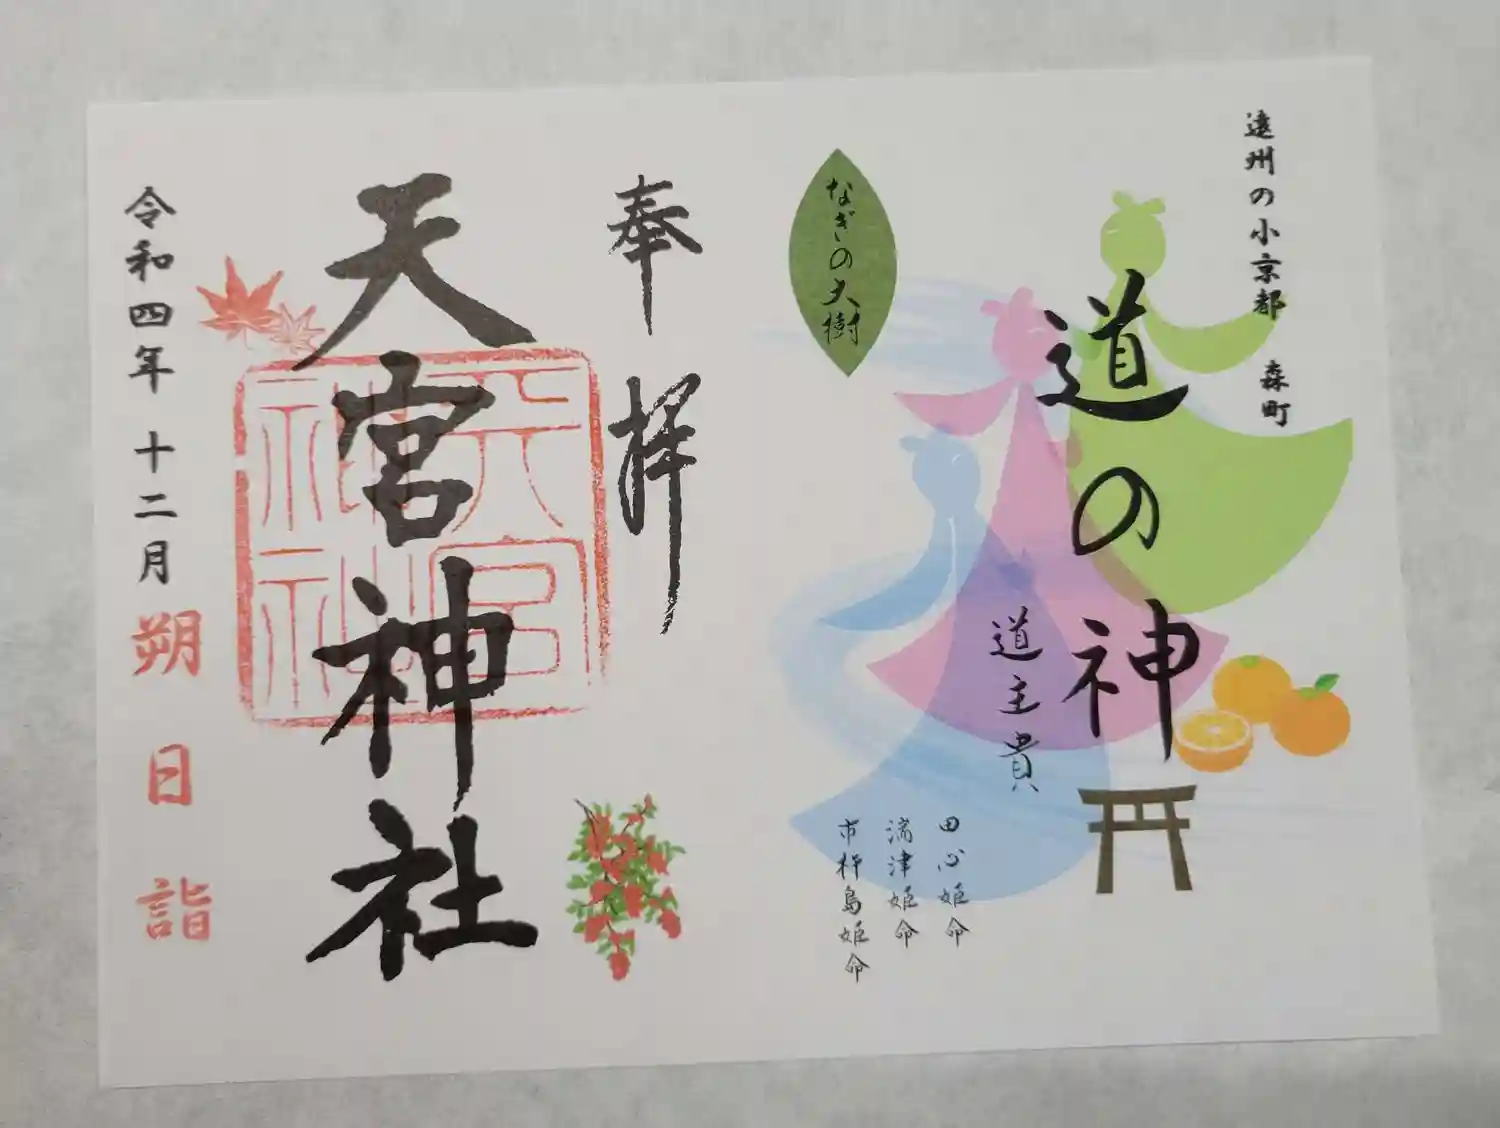 遠州の小京都　森町
道の神
道主貴
なぎの大樹
田心姫命
湍津姫命
市杵島姫命
奉拝
天宮神社
天宮神社
令和四年十二月
朔日詣